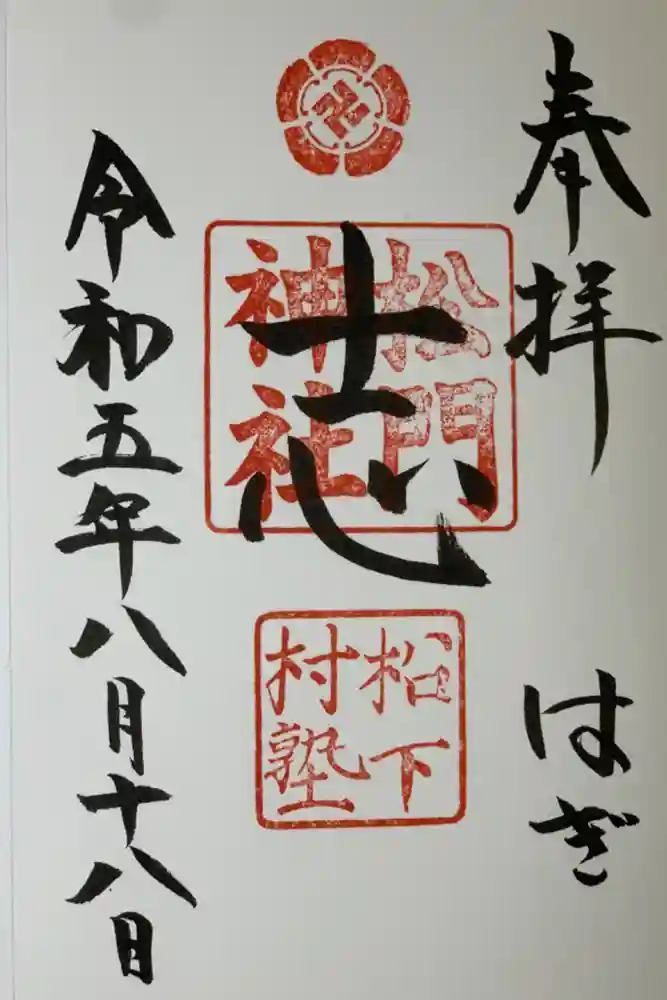 奉拝 はぎ
志
松門神社
松下村塾
令和五年八月十八日